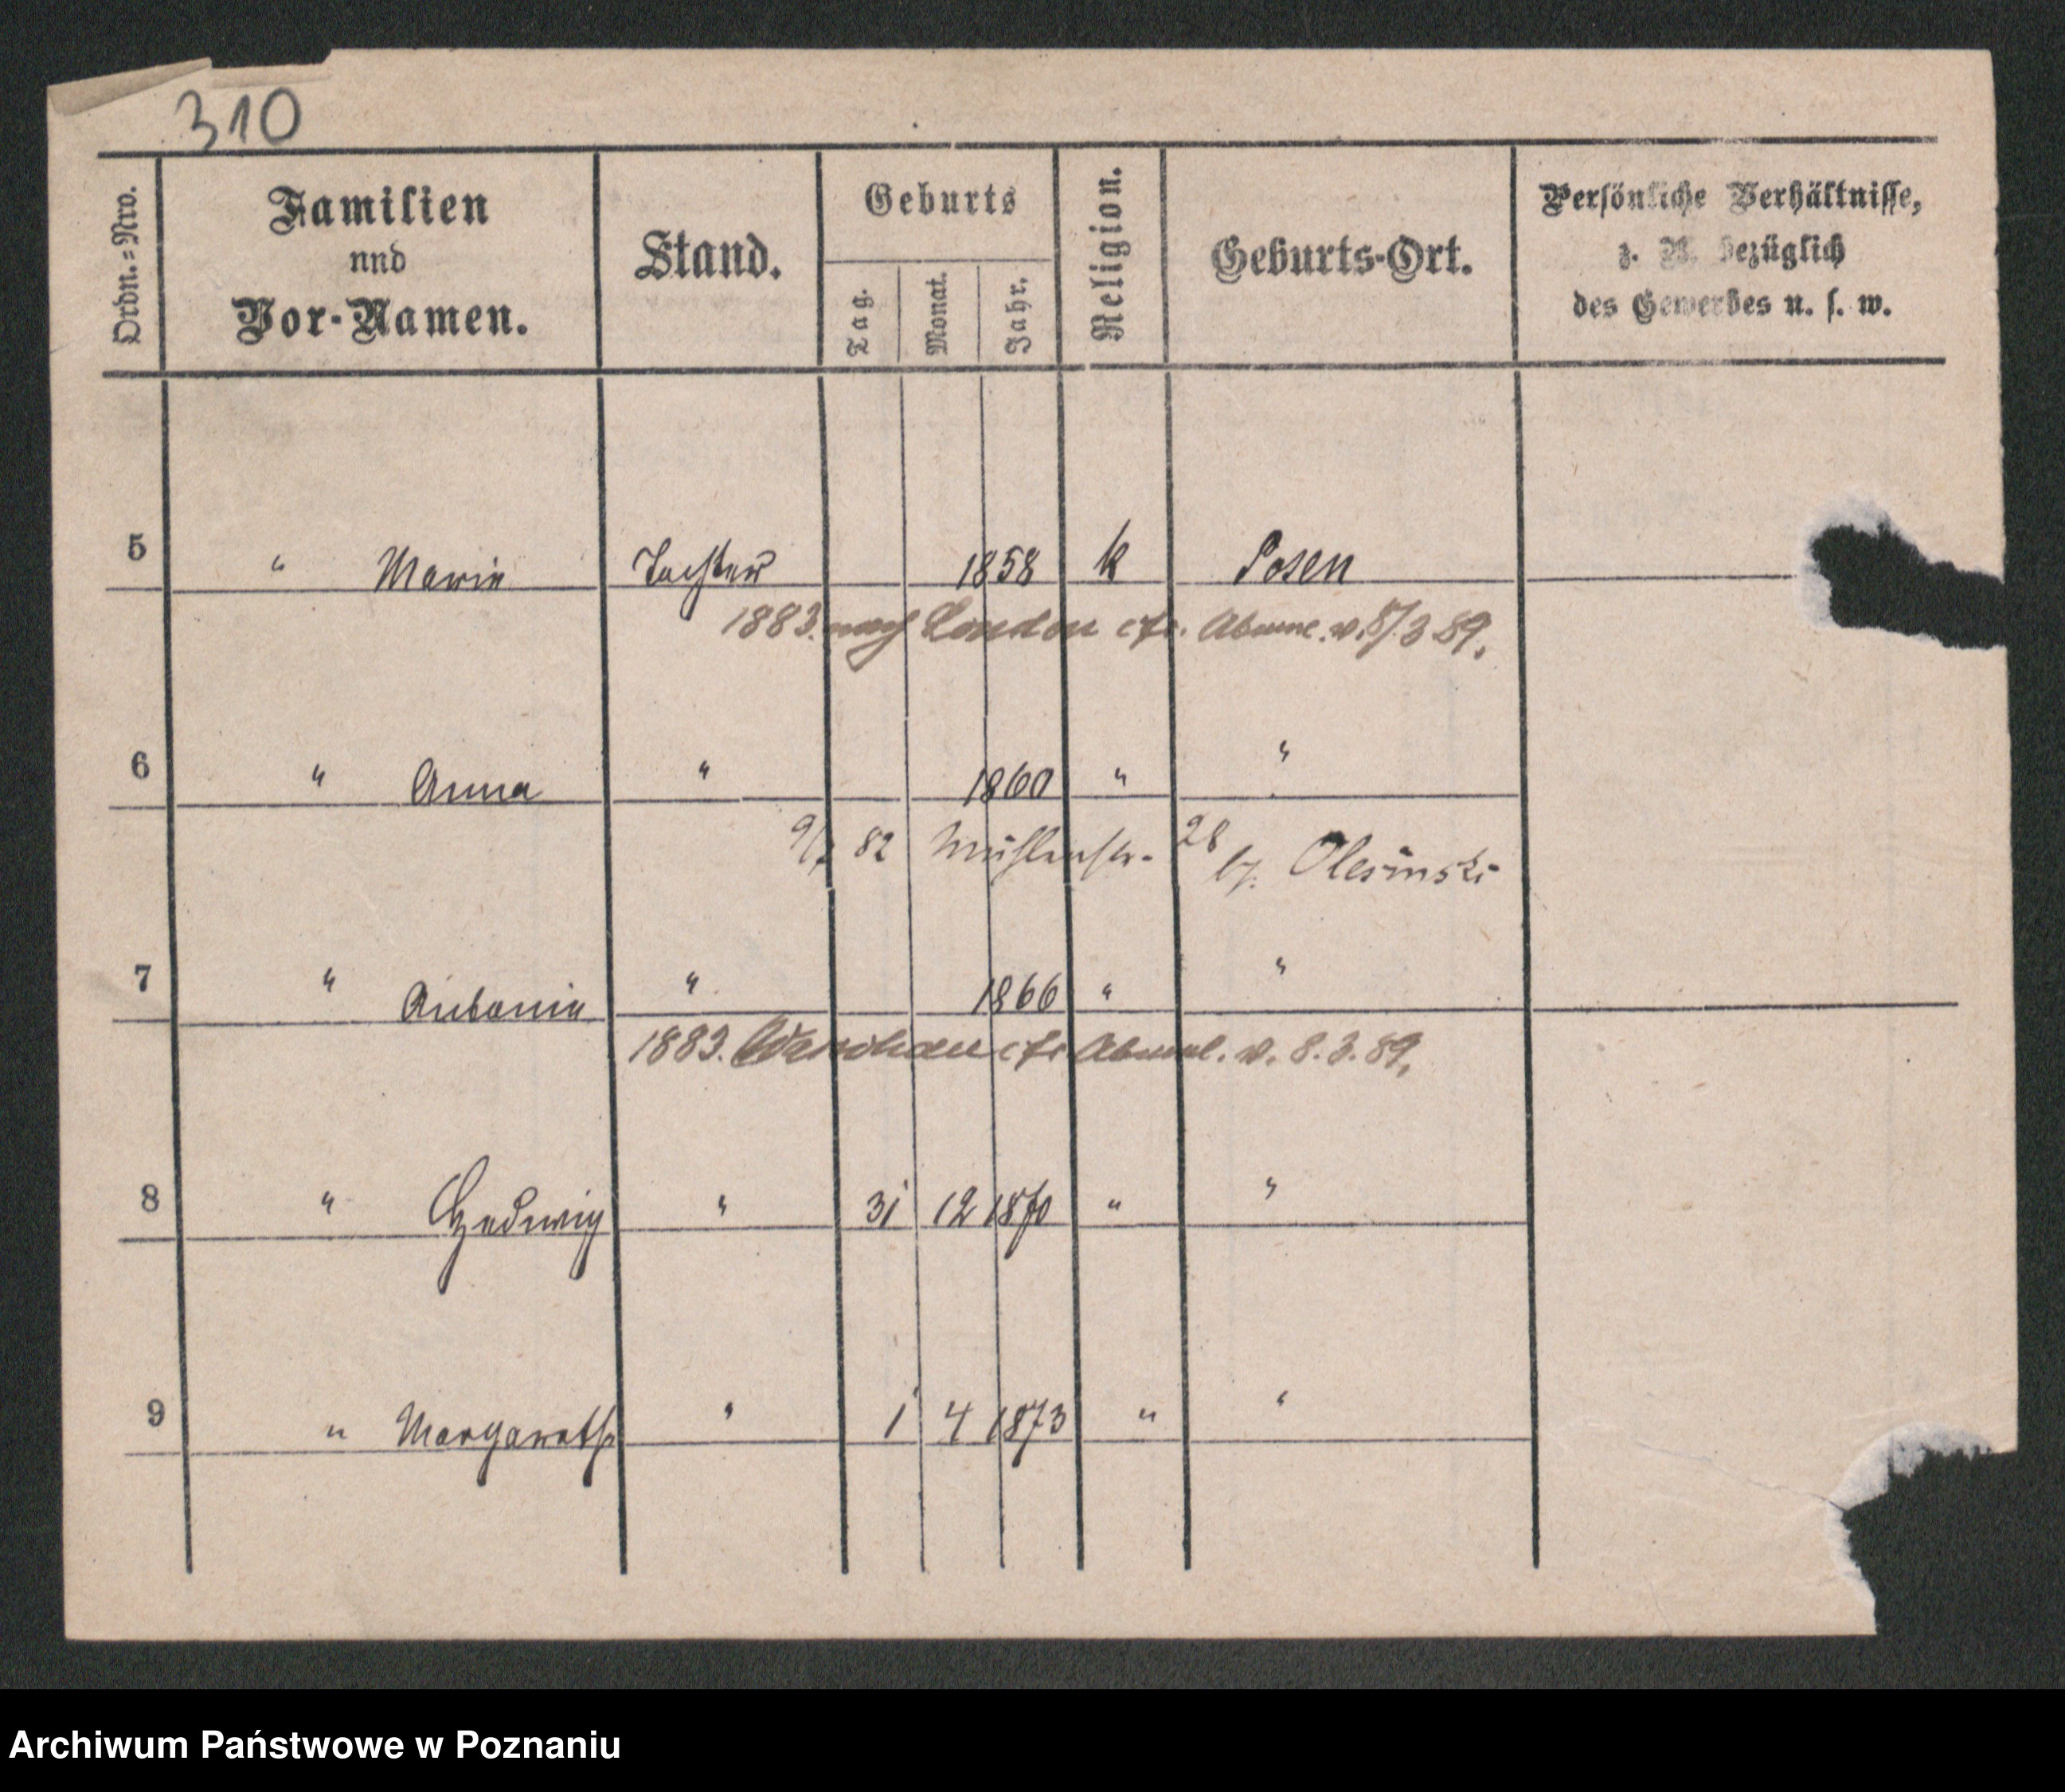 310
Ordn.=Nro.
Familien
und
Vor-Namen.
Stand.
Geburts
Tag.
Monat.
Jahr.
Religion.
Geburts-Ort.
Persönliche Verhältnisse,
z. B. bezüglich
des Gewerbes u. s. w.
5 " Marie Tochter 1858 k Posen
1883. nach London cfr. Abmel. v. 8/3 89.
6 " Anna " 1860 " "
9/7 82 Mühlenstr. 28 b/. Olesinski
7 " Antonie " 1866 " "
1883. Warschau cfr Abmel. v. 8.3.89.
8 " Hedwig " 31 12 1870 " "
9 " Margareth " 1 4 1873 " "
Archiwum Państwowe w Poznaniu